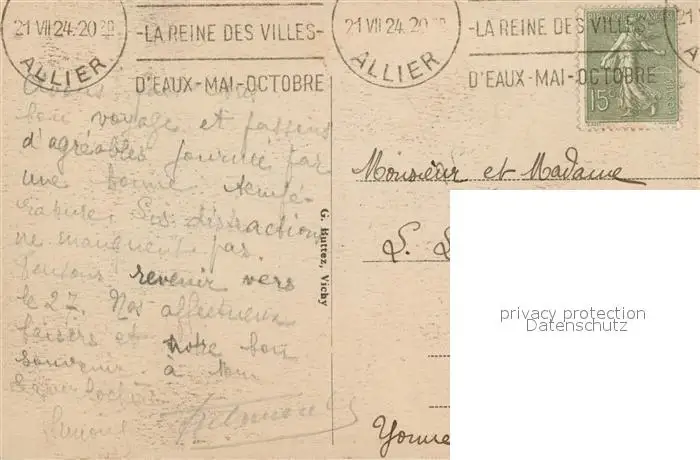 21 VII 24-20
-LA REINE DES VILLES-
D'EAUX-MAI-OCTOBRE
ALLIER
21 VII 24-20
-LA REINE DES VILLES
D'EAUX-MAI-OCTOBRE
ALLIER
21
15c
bon voyage et passons
d'agréables journée par
une bonne tempé-
rature. Les distractions
ne manquent pas.
Pensons revenir vers
le 27. Nos affectueux
baisers et notre bon
souvenir à
Monsieur et Madame
Yonne
G. Buttez, Vichy
privacy protection
Datenschutz